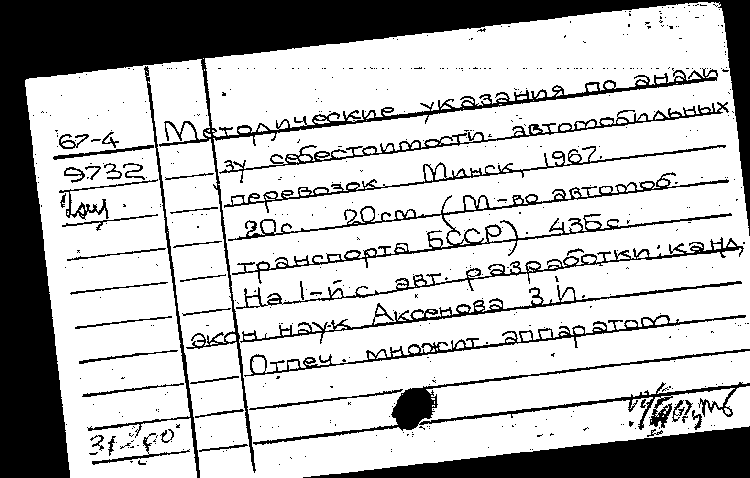 67-4 Методические указания по анали-
9732 зу себестоимости автомобильных
перевозок. Минск, 1967.
20с. 20см. (М-во автомоб.
транспорта БССР). 435с.
На 1-й с. авт. разработки: канд.
экон. наук Аксенова З.И.
Отпеч. множит. аппаратом.